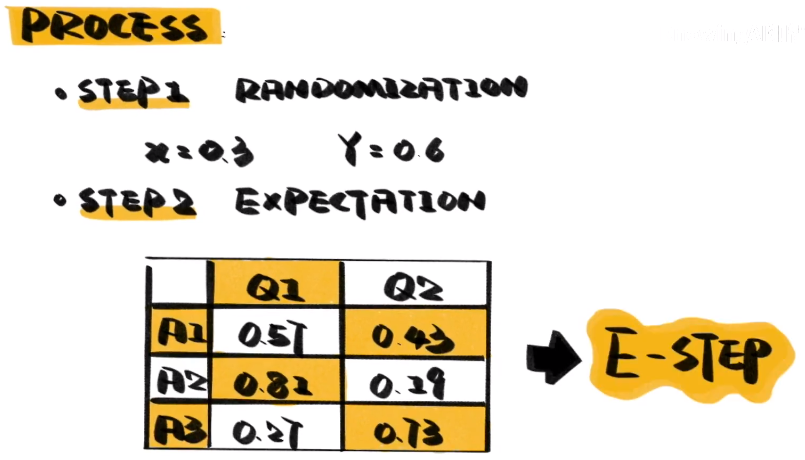 PROCESS
• STEP1 RANDOMIZATION
x=0.3 Y=0.6
• STEP2 EXPECTATION
Q1 Q2
A1 0.57 0.43
A2 0.81 0.19
A3 0.27 0.73
E-STEP